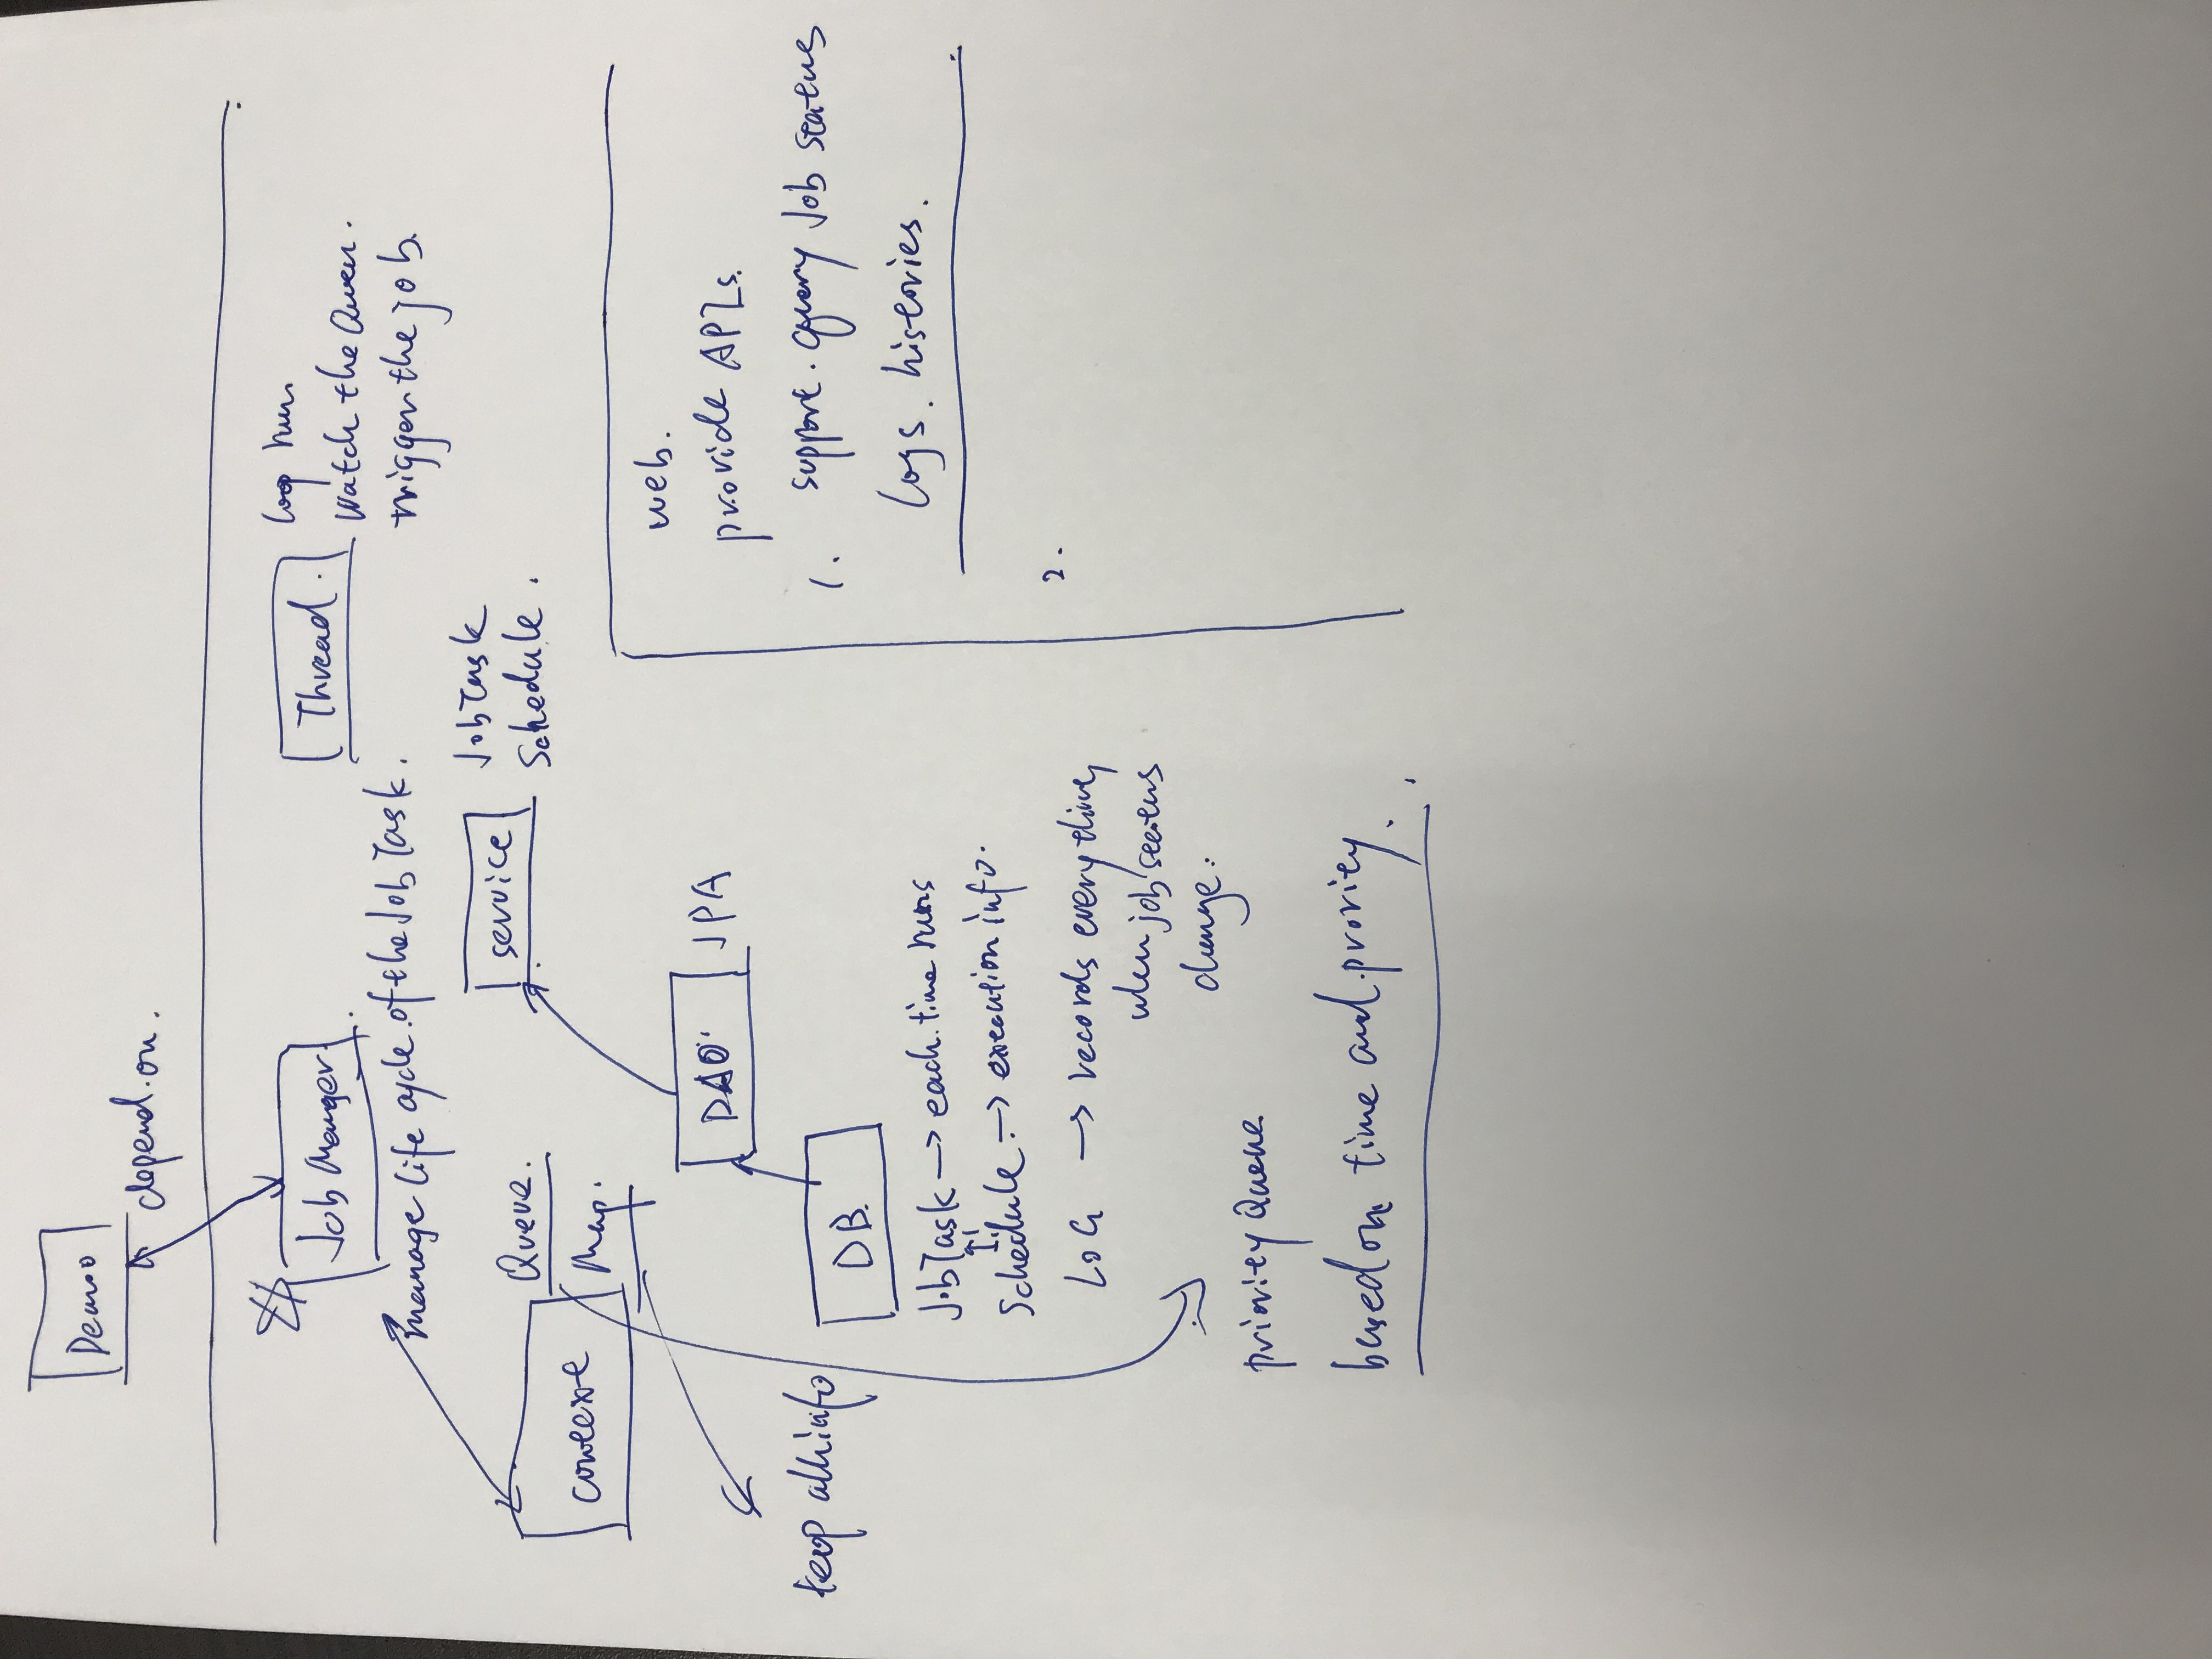 Demo
depend on.
Job Manager.
manage life cycle of the Job Task.
Thread.
loop run
watch the Queue.
trigger the job.
context
Queue.
Map.
service
JobTask
Schedule.
DAO
JPA
keep all info
DB.
JobTask → each time runs
Schedule → execution info.
LOG → records every time,
when job status
change.
priority Queue
based on time and prority.
web.
provide APIs.
1. support query Job status
logs. histories.
2.